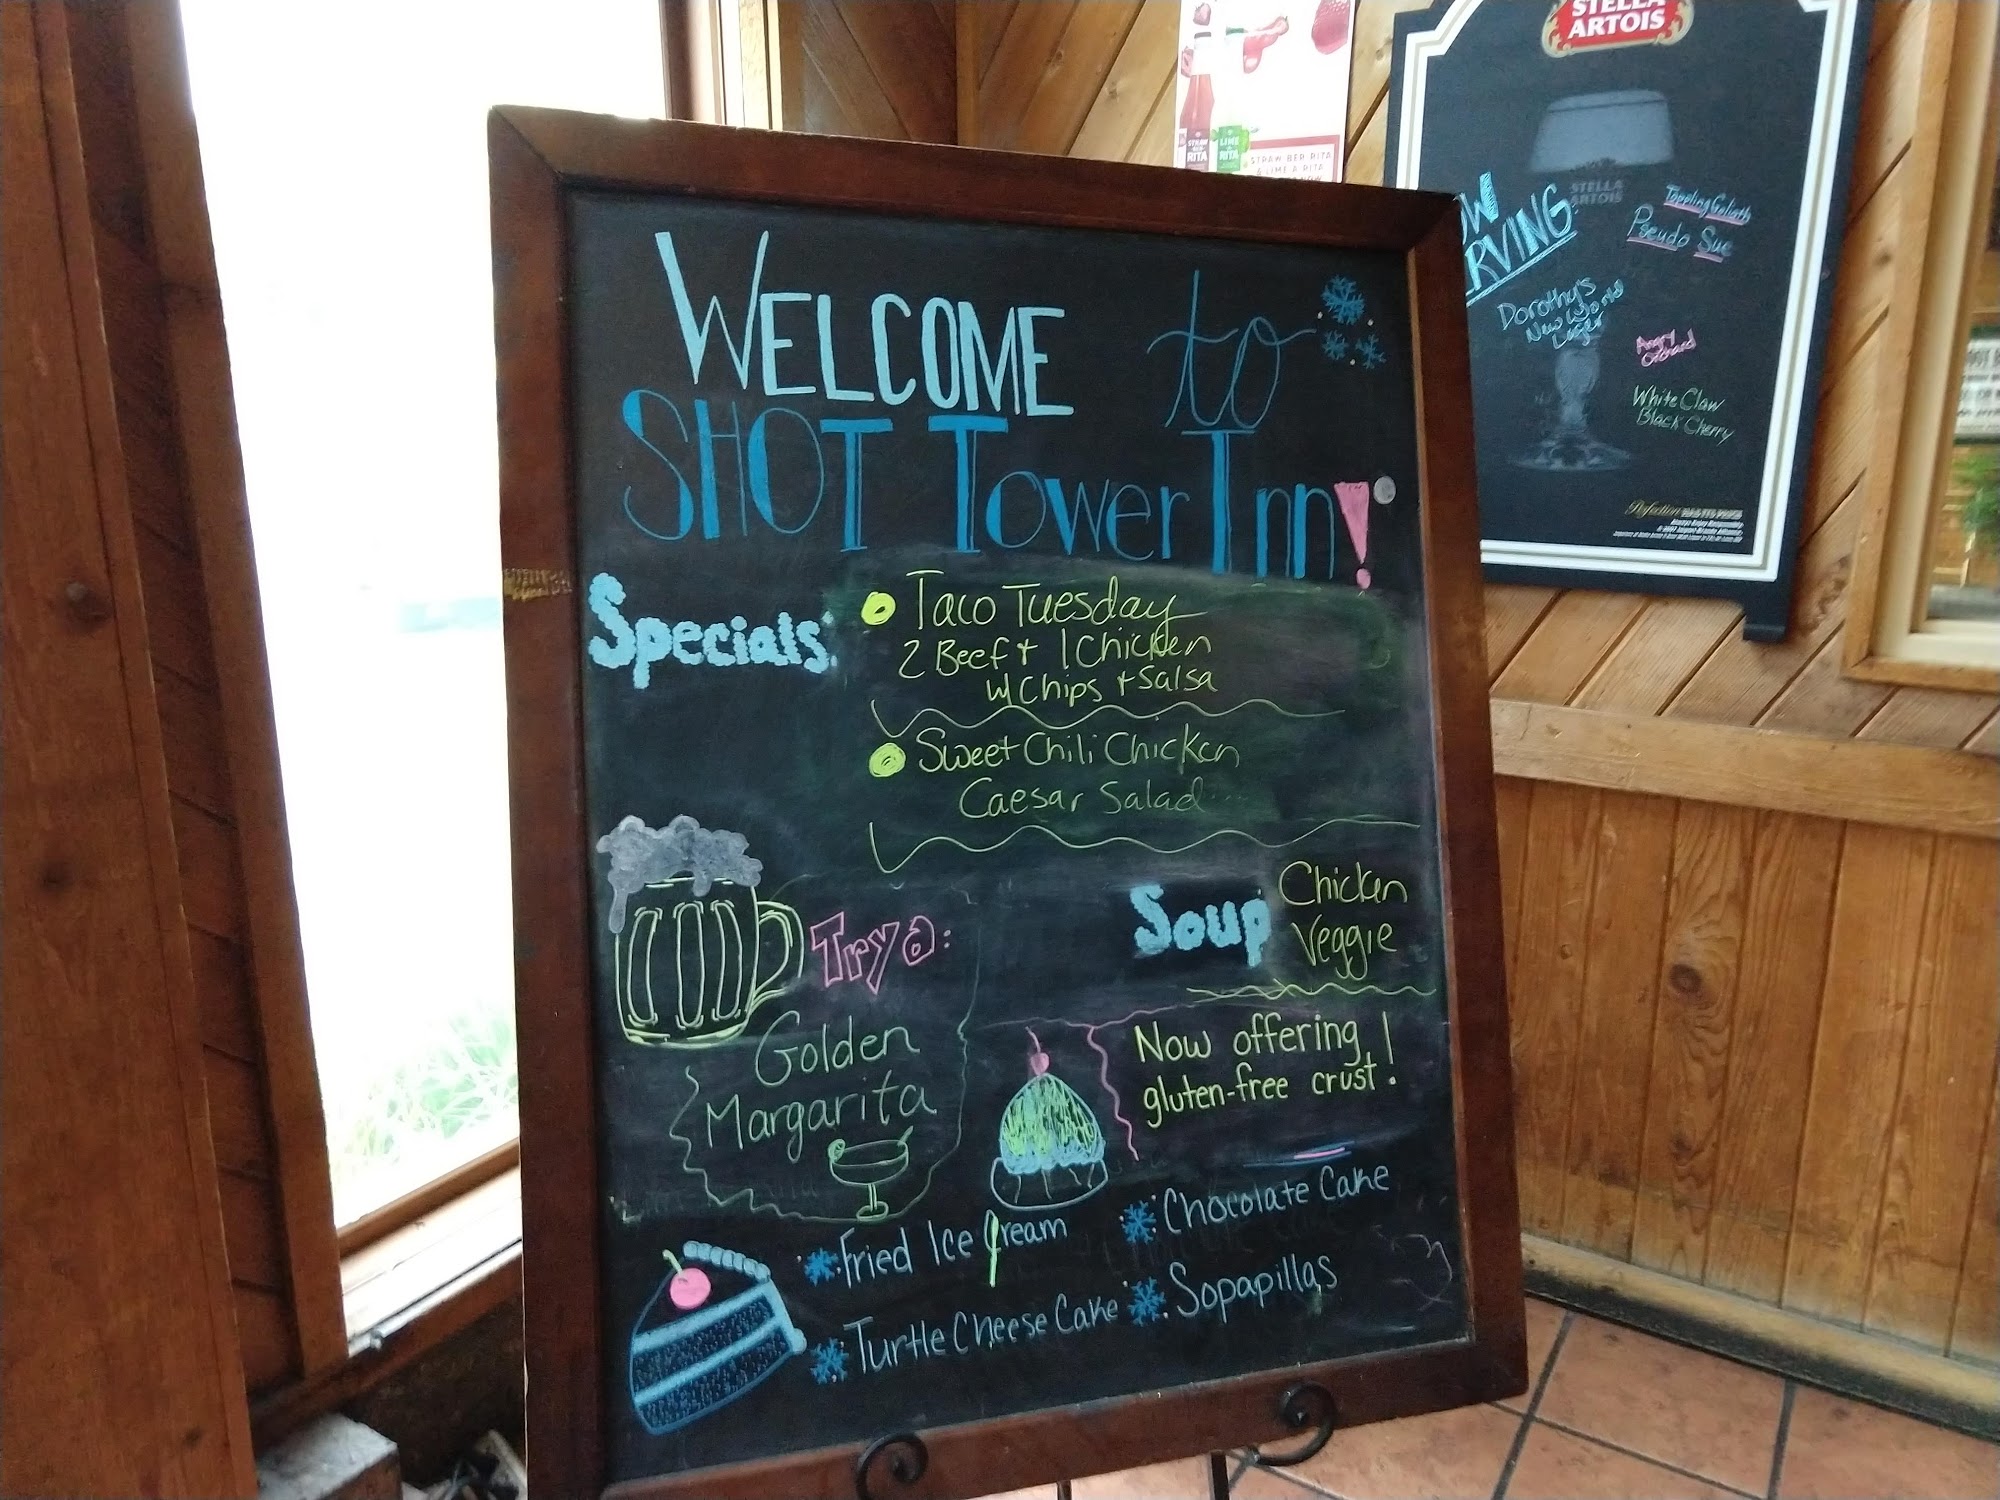 WELCOME to
SHOT Tower Inn!
Specials:
Taco Tuesday
2 Beef + 1 Chicken
w/ Chips + Salsa
Sweet Chili Chicken
Caesar Salad
Try a:
Golden
Margarita
Soup:
Chicken
Veggie
Now offering
gluten-free crust!
Fried Ice Cream
Chocolate Cake
Turtle Cheese Cake
Sopapillas
STRAW BER RITA
LIME A RITA
STRAW-BER-RITA
& LIME-A-RITA
STELLA
ARTOIS
STELLA
ARTOIS
OW
RVING
Toppling Goliath
Pseudo Sue
Dorothy's
New World
Lager
Angry
Orchard
White Claw
Black Cherry
Perfection